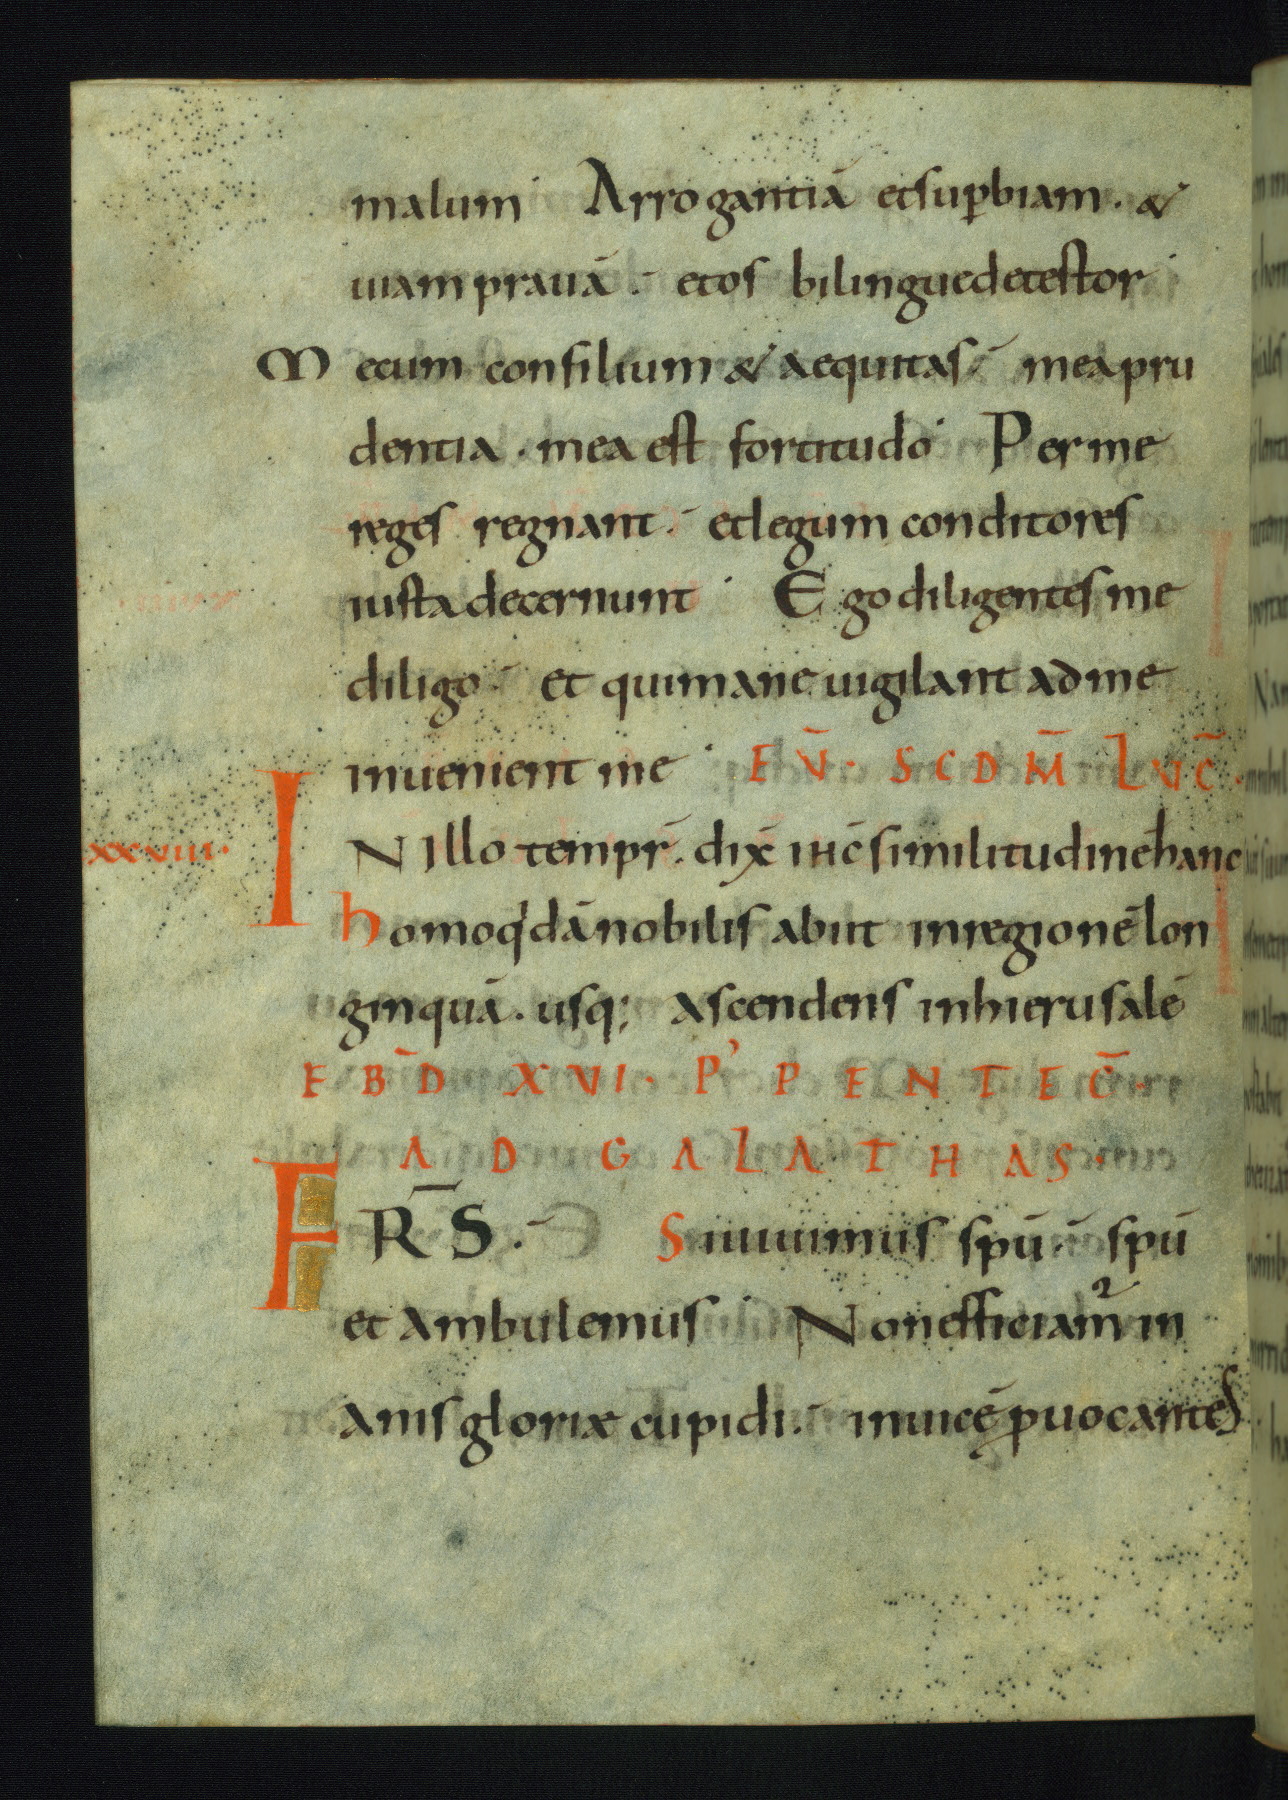 malum Arrogantiā etsuꝑbiam. &
uiam prauā. et os bilingue detestor
Mecum consilium & aequitas mea pru
dentia. mea est fortitudo Per me
reges regnant. et legum conditores
iusta decernunt Ego diligentes me
diligo et qui mane uigilant ad me
inuenient me EṼ. SCDM̄ LUC̄.
XXVIII. IN Illo tempr̄. dix̄ ihc̄ similitudinē hanc
homo q'dā nobilis abiit in regionē lon
ginquā. usq; ascendens in hierusalē
EBD̄ XVI. P' PENTEC̄.
AD GALATHAS.
FRS̄. Si uiuimus spū. spū
et ambulemus Non efficiam̉ in
anis gloriae cupidi. inuicē ꝓuocantes